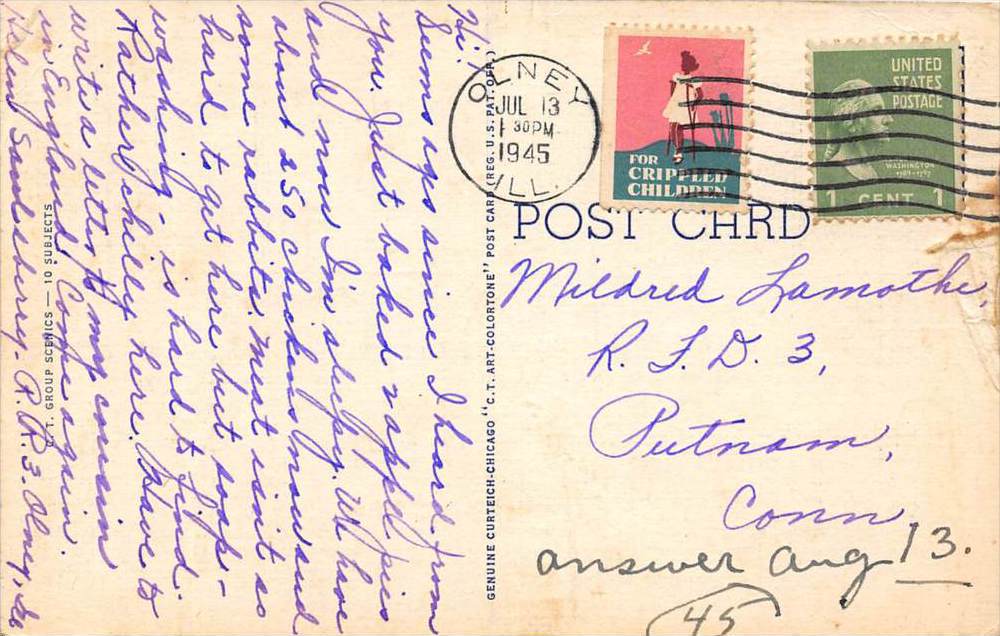 Hi,
Seems ages since I heard from
you. Just baked 2 apple pies
and now I'm sleepy. We have
about 250 chickens now and
some rabbits. Meat isn't so
hard to get here but soap -
washing - is hard to find.
Rather chilly here. Have to
write a letter to my cousin
in England. Come again.
Helen Sandsberry - R.R. 3. Olney, Ill
C. T. GROUP SCENICS — 10 SUBJECTS
GENUINE CURTEICH-CHICAGO "C. T. ART-COLORTONE" POST CARD (REG. U. S. PAT. OFF.)
OLNEY
JUL 13
1 30PM
1945
ILL.
FOR
CRIPPLED
CHILDREN
UNITED
STATES
POSTAGE
WASHINGTON
1789-1797
1 CENT 1
POST CARD
Mildred Lamothe,
R. F. D. 3,
Putnam,
Conn
answer Aug 13.
45